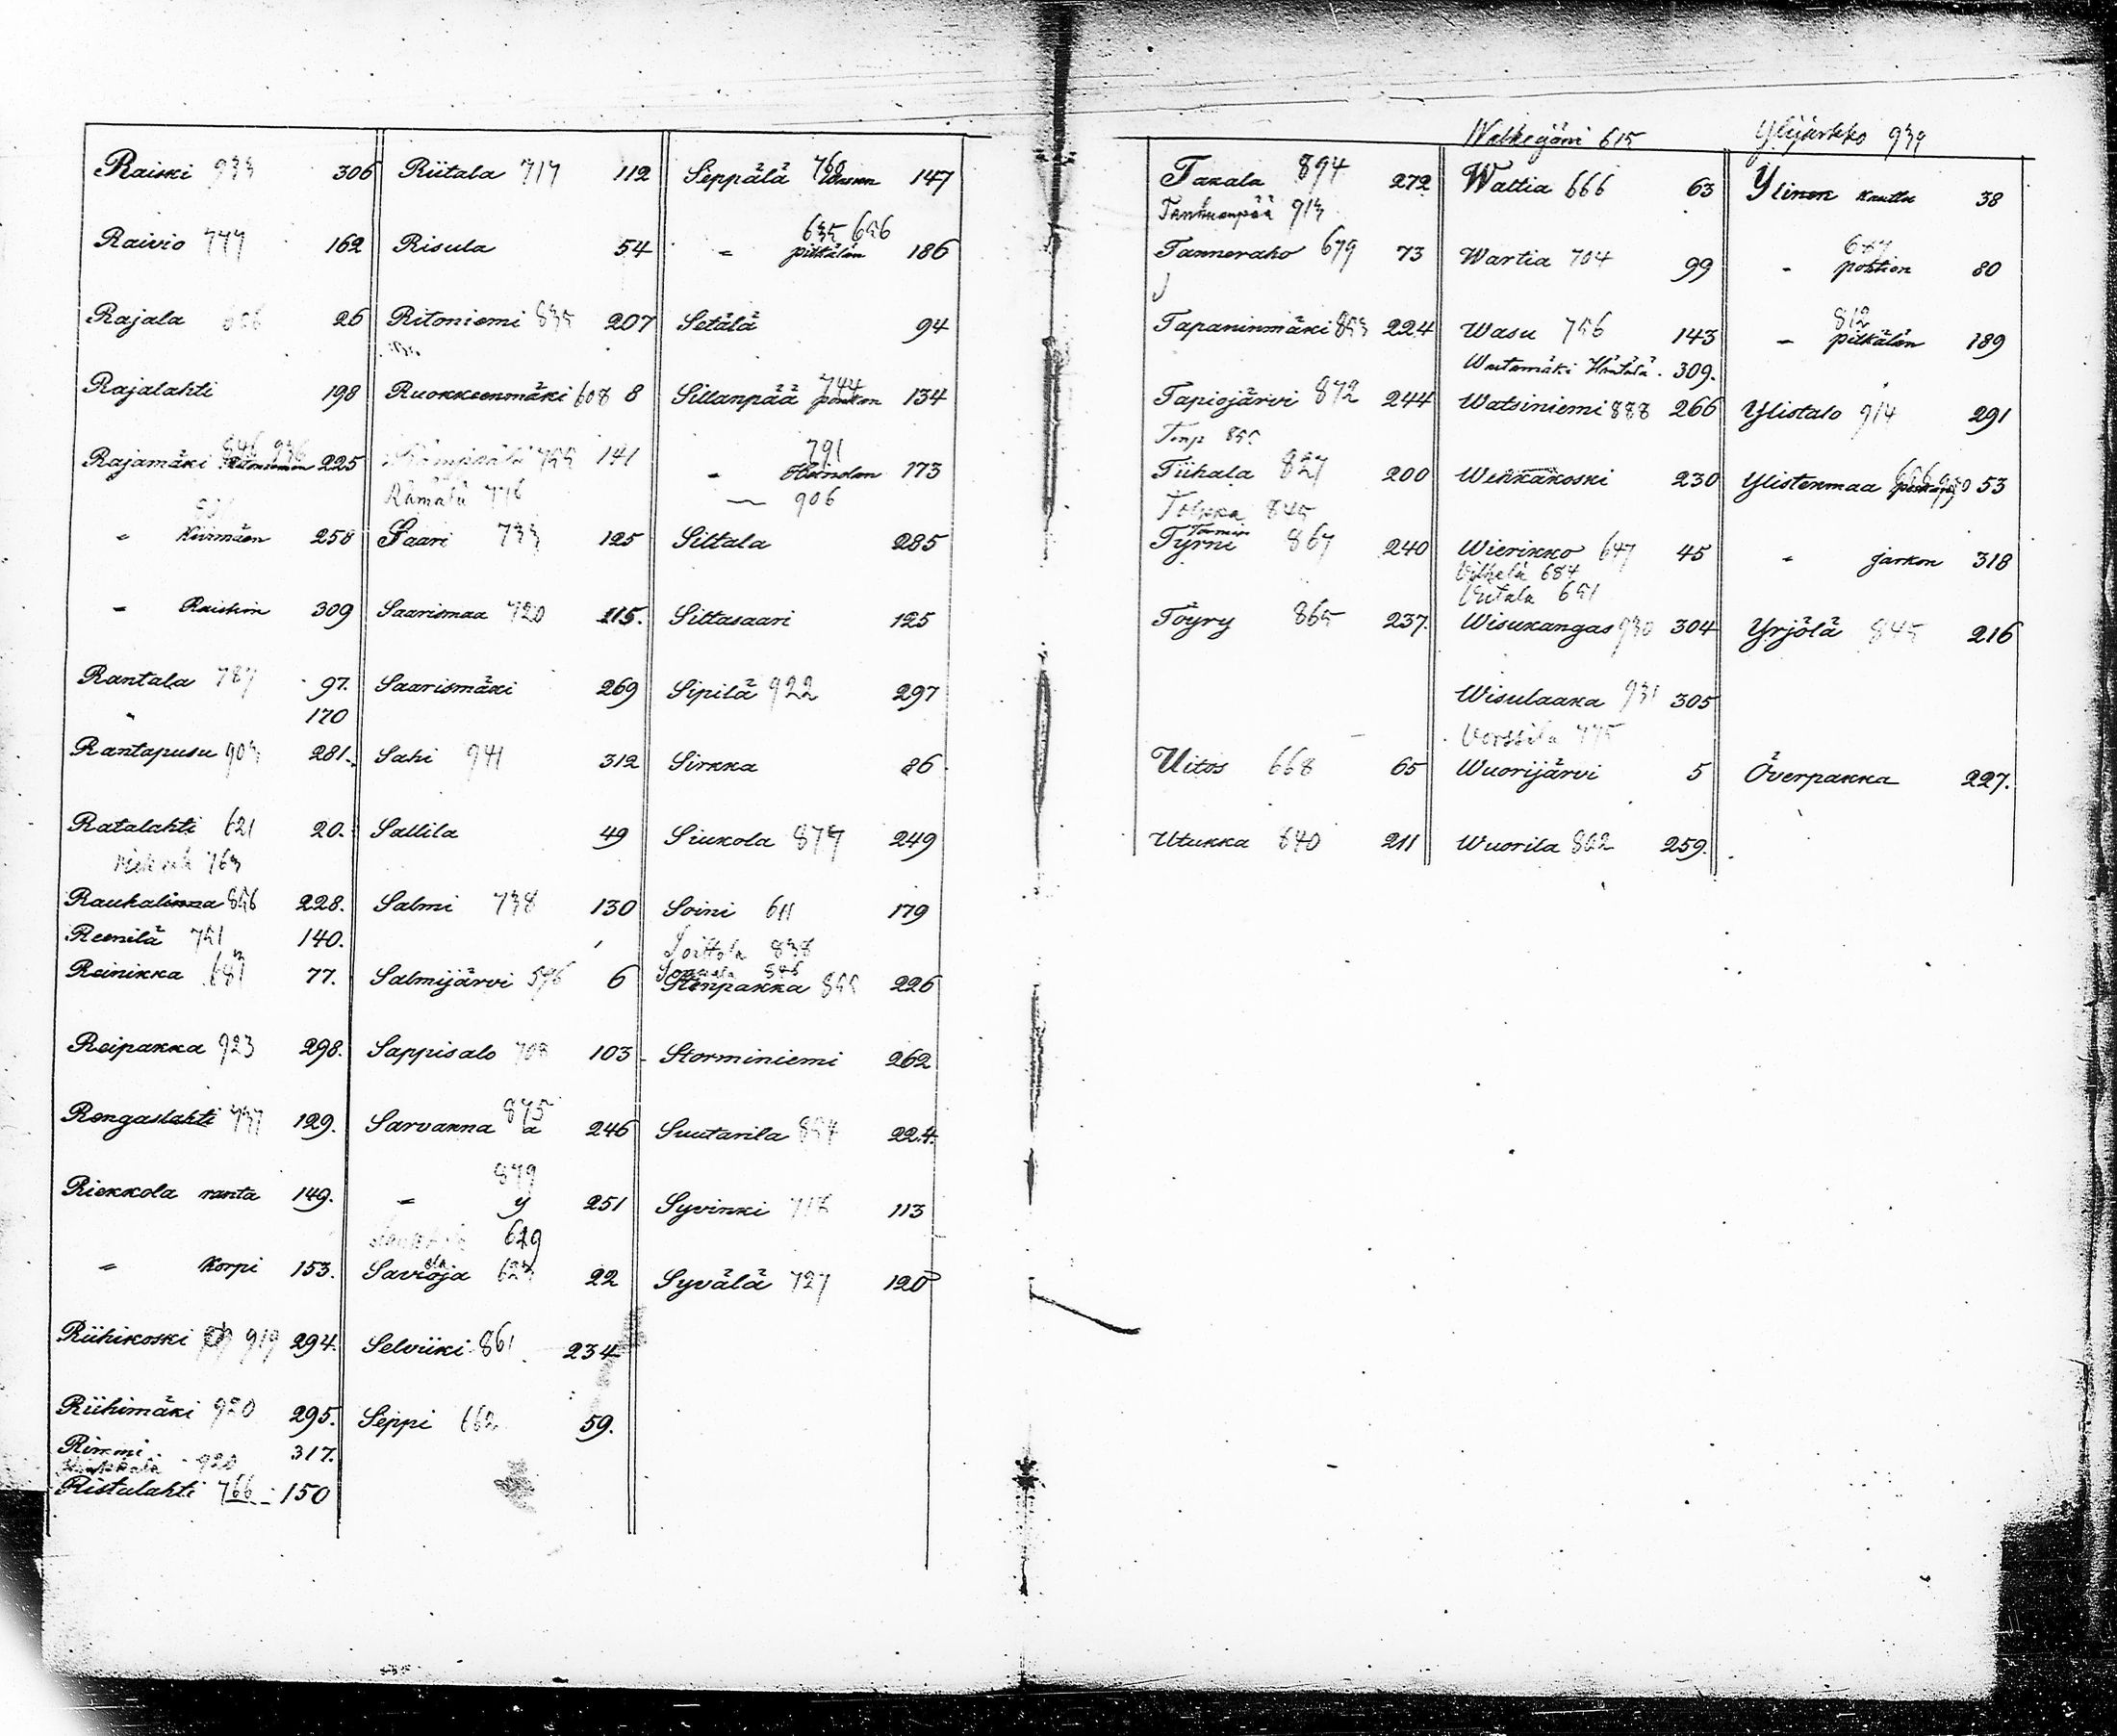 Raiski 933 306
Raivio 777 162
Rajala 26
Rajalahti 198
Rajamäki 846 936 225
" Kurmäen 258
" Raiskin 309
Rantala 787 97.
" 170
Rantapusu 903 281.
Ratalahti 621 20.
763
Rauhalinna 856 228.
Reenilä 751 140.
Reinikka 681 77.
Reipakka 923 298.
Rengaslahti 737 129.
Riekkola ranta 149.
" Korpi 153.
Riihikoski 919 294.
Riihimäki 920 295.
Rimmi 317.
920
Ristulahti 766 150
Riitala 717 112
Risula 54
Ritoniemi 835 207
Ruokkeenmäki 608 8
755 141
Rämälä 776
Saari 733 125
Saarismaa 720 115.
Saarismäki 269
Sahi 941 312
Sallila 49
Salmi 738 130
Salmijärvi 596 6
Sappisalo 708 103
Sarvanna a 875 246
" y 879 251
629
Savioja 623 22
Selviiki 861 234
Seppi 662 59.
Seppälä 760 147
" 635 656 pitkälän 186
Setälä 94
Sillanpää 744 134
" 791 173
" 906
Siltala 285
Siltasaari 125
Sipilä 922 297
Sirkka 86
Siukola 877 249
Soini 611 179
Soittola 838
846
Stenpakka 855 226
Storminiemi 262
Suutarila 854 224.
Syvinki 718 113
Syvälä 727 120
Takala 894 272
Tanhuanpää 913
Tanneraho 679 73
Tapaninmäki 853 224
Tapiojärvi 872 244
Tiihala 827 200
Tolkka 845
Tyrni 867 240
Töyry 865 237.
Uitos 668 65
Utukka 840 211
Walkejärvi 615
Waltia 666 63
Wartia 704 99
Wasu 756 143
309.
Watsiniemi 888 266
Wehkäkoski 230
Wierikko 647 45
Vilhelä 684
Viitala 651
Wisukangas 930 304
Wisulaaka 931 305
Vorssila 775
Wuorijärvi 5
Wuorila 862 259.
Ylijärkko 939
Ylinen Kautta 38
" pohtion 80
" 812 pitkälän 189
Ylistalo 914 291
Ylistenmaa 53
" Jarkon 318
Yrjölä 845 216
Överpakka 227.